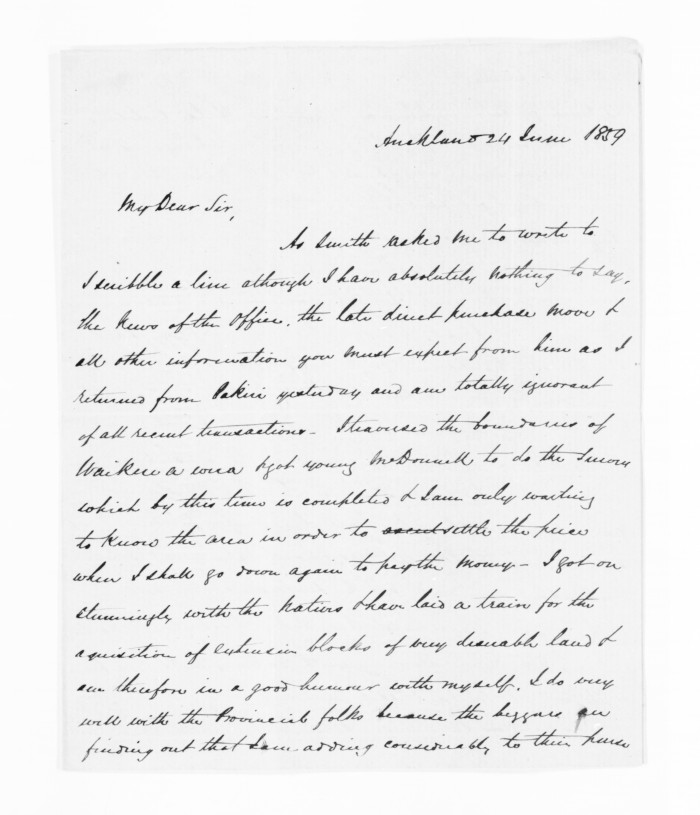 Auckland 24 June 1859
My Dear Sir,
As Smith asked me to write to
I scribble a line although I have absolutely nothing to say,
the News of the Office, the late direct purchase move &
all other information you must expect from him as I
returned from Pakiri yesterday and am totally ignorant
of all recent transactions - I traversed the boundaries of
Waikeri a wera & got young McDonnell to do the Survey
which by this time is completed & I am only waiting
to know the area in order to settle the price
when I shall go down again to pay the money - I got on
stunningly with the Natives & have laid a train for the
aquisition of extensive blocks of very desirable land &
am therefore in a good humour with myself. I do very
well with the Provincial folks because the beggars are
finding out that I am adding considerably to their purse